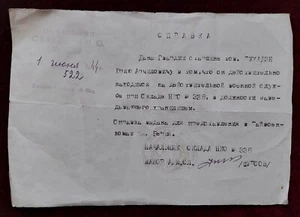 СПРАВКА
1 июня
522
Дана Гвардии старшине тов.
в том, что он действительно
находится на действительной военной служ-
бе при Складе НКО № 338, в должности заве-
дывающего хранилищем.
Справка выдана для представления в Райвоен-
комат гор.
НАЧАЛЬНИК СКЛАДА НКО № 338
МАЙОР